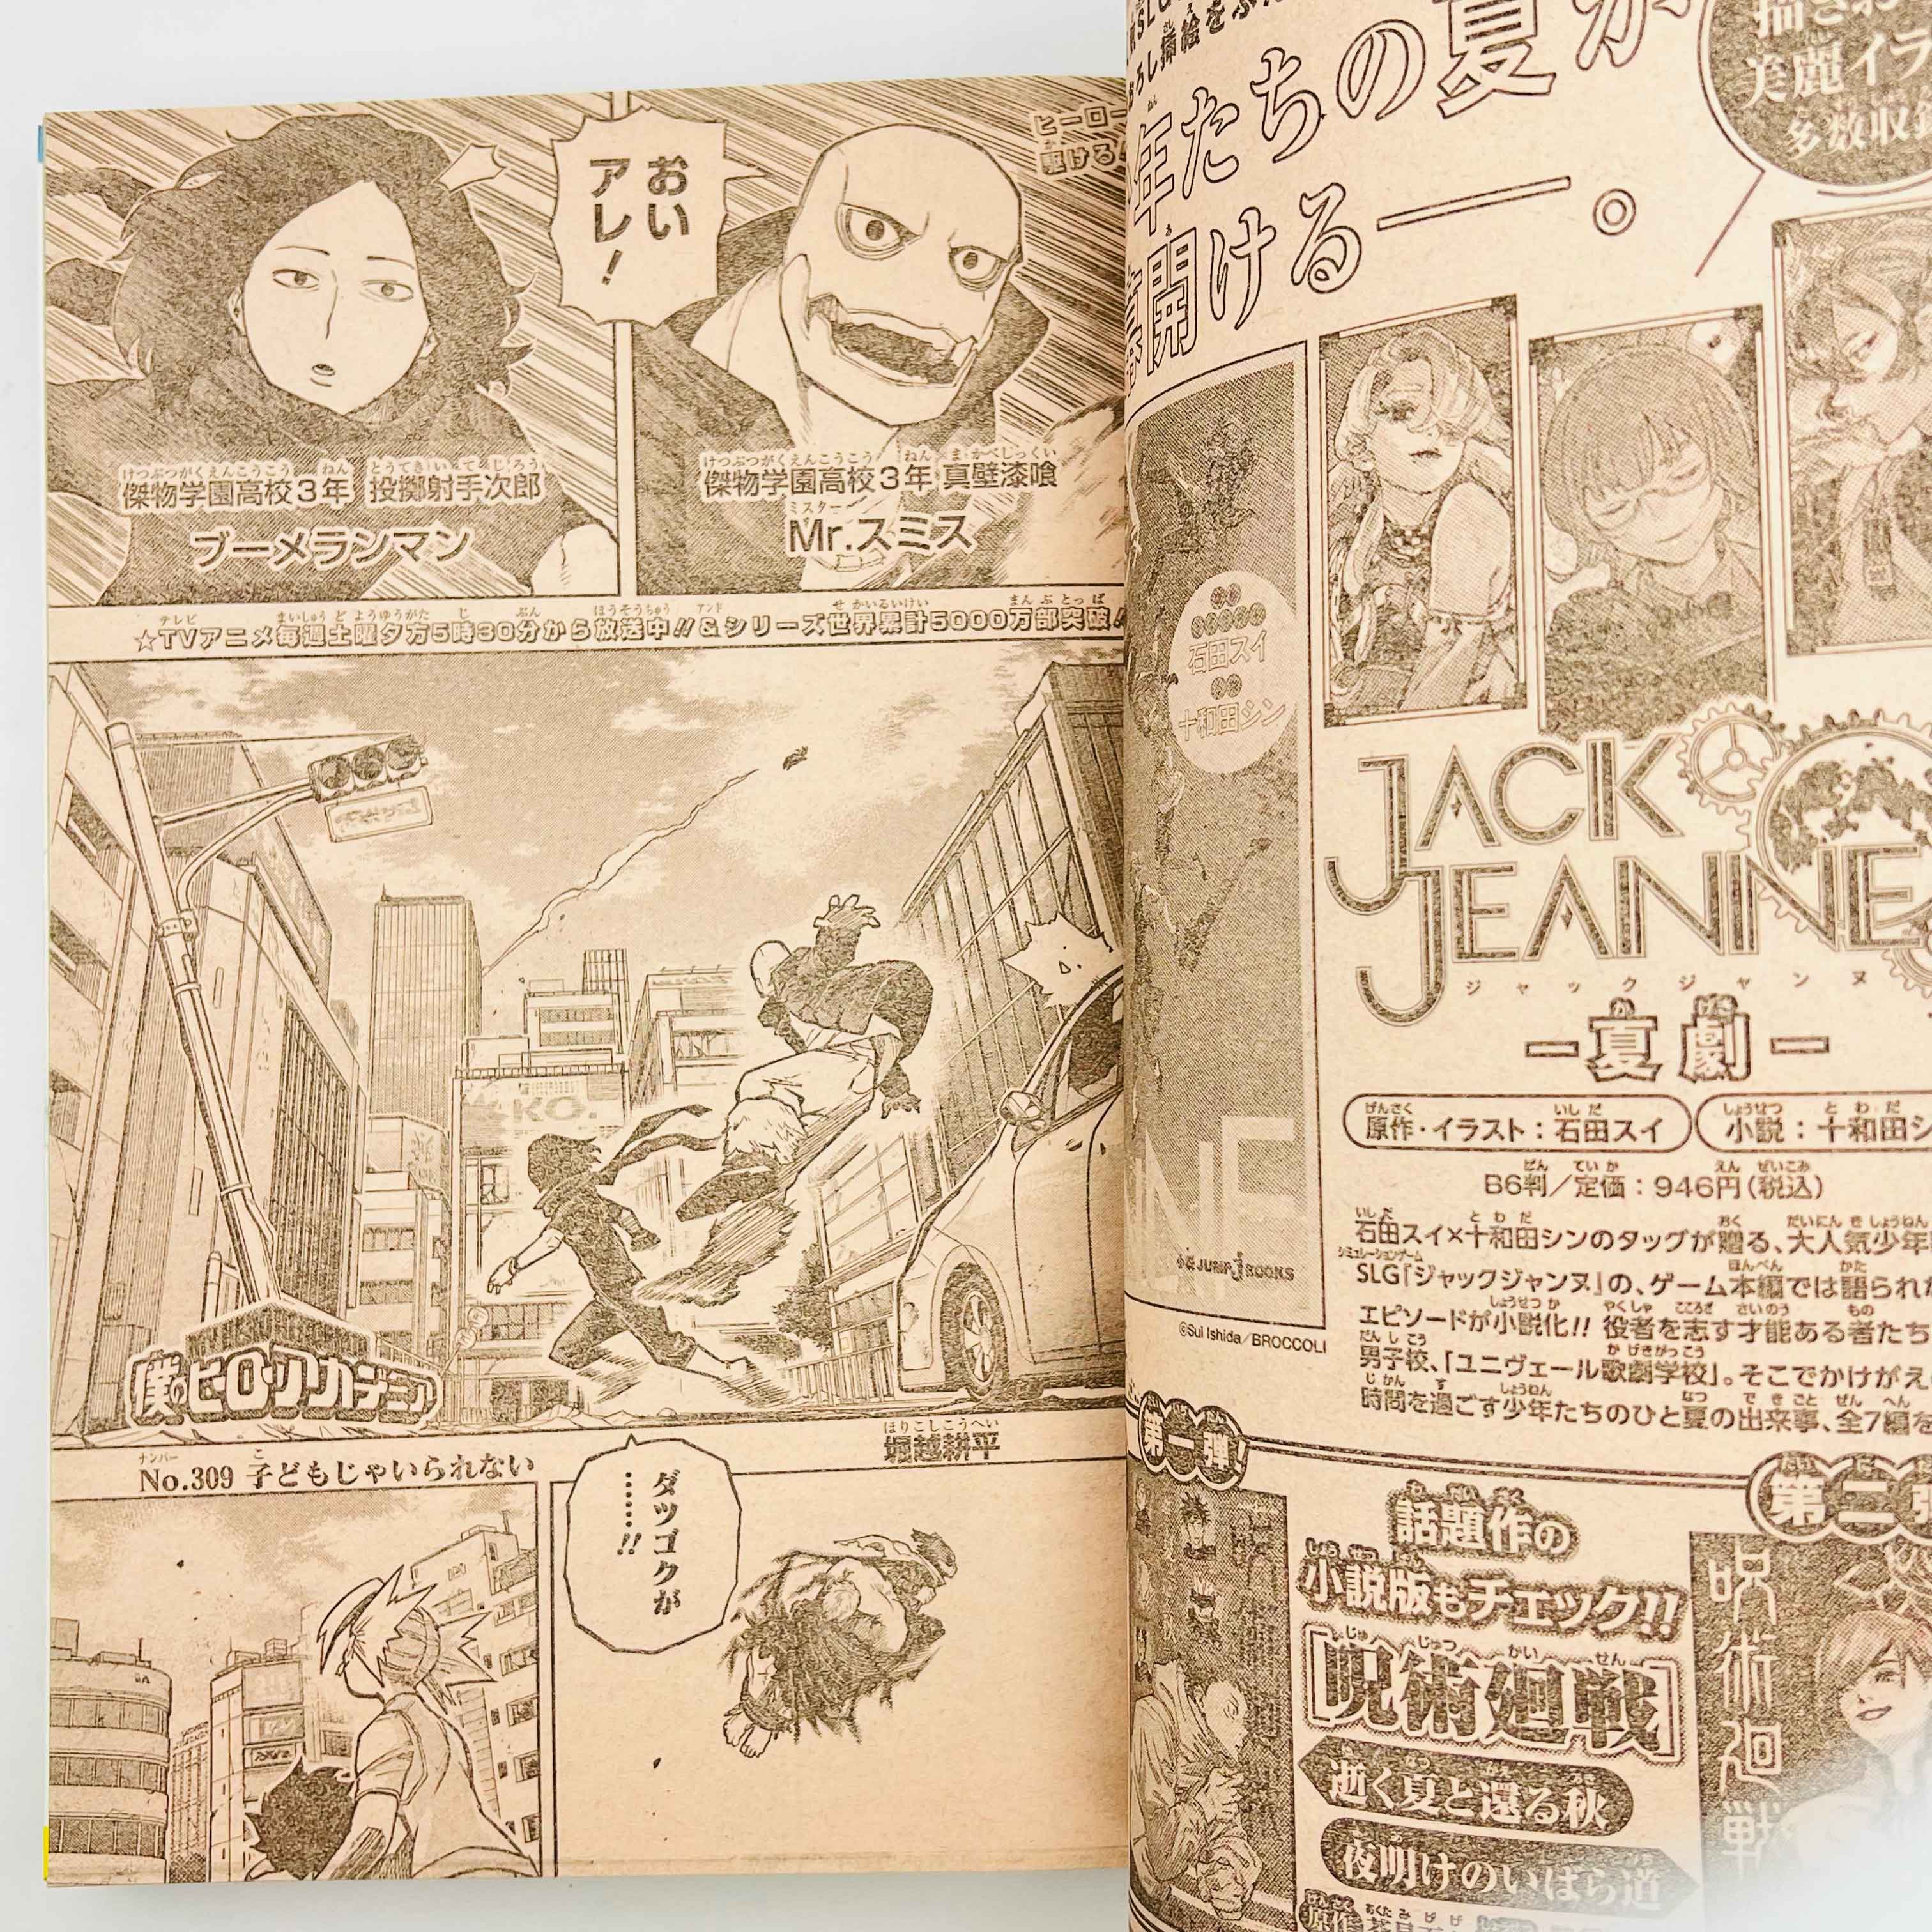 ヒーロー
駆ける!
おい
アレ!
傑物学園高校3年 真壁漆喰
Mr.スミス
傑物学園高校3年 投擲射手次郎
ブーメランマン
☆TVアニメ毎週土曜夕方5時30分から放送中!!&シリーズ世界累計5000万部突破!
KO.
僕のヒーローアカデミア
堀越耕平
No.309 子どもじゃいられない
ダツゴクが
……!!
年たちの夏が
幕開ける――。
美麗イラ
多数収
石田スイ
十和田シン
小説 JUMP J BOOKS
©Sui Ishida/BROCCOLI
JACK
JEANNE
ジャックジャンヌ
－夏劇－
原作・イラスト:石田スイ
小説:十和田シ
B6判/定価:946円(税込)
石田スイ×十和田シンのタッグが贈る、大人気少年
SLG「ジャックジャンヌ」の、ゲーム本編では語られ
エピソードが小説化!! 役者を志す才能ある者たち
男子校、「ユニヴェール歌劇学校」。そこでかけがえ
時間を過ごす少年たちのひと夏の出来事、全7編を
第一弾!
第二弾
話題作の
小説版もチェック!!
[呪術廻戦]
逝く夏と還る秋
夜明けのいばら道
呪術廻戦